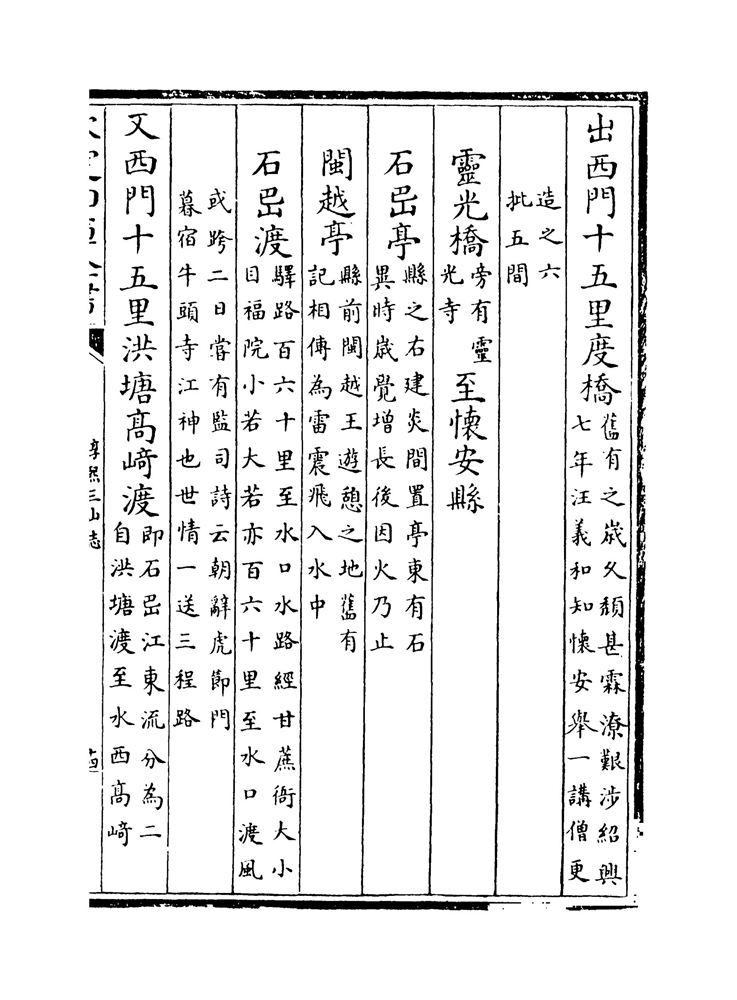 出西門十五里度橋舊有之歲久頽甚霖潦艱涉紹興
七年汪義和知懷安舉一講僧更
造之六
批五間
靈光橋旁有靈
光寺
至懷安縣
石岊亭縣之右建炎間置亭東有石
異時歲覺增長後因火乃止
閩越亭縣前閩越王遊憩之地舊有
記相傳為雷震飛入水中
石岊渡驛路百六十里至水口水路經甘蔗衙大小
目福院小若大若亦百六十里至水口渡風
或跨二日嘗有監司詩云朝辭虎節門
暮宿牛頭寺江神也世情一送三程路
又西門十五里洪塘高崎渡即石岊江東流分為二
自洪塘渡至水西高崎
淳熙三山志